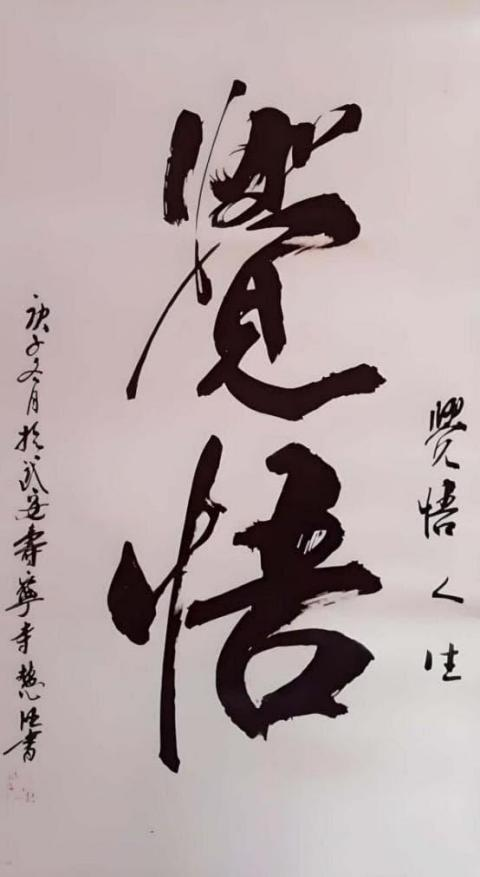 覺悟人生
覺悟
庚子冬月於武安壽寧寺慧書